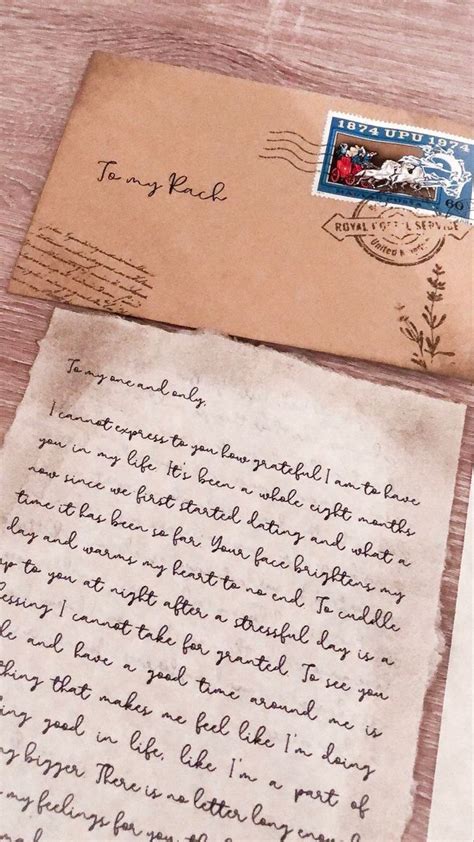 1874 UPU 1974
60
To my Rach
ROYAL SERVICE
United
To my one and only,
I cannot express to you how grateful I am to have
you in my life. It's been a whole eight months
now since we first started dating and what a
time it has been so far. Your face brightens my
day and warms my heart to no end. To cuddle
up to you at night after a stressful day is a
essing I cannot take for granted. To see you
le and have a good time around me is
thing that makes me feel like I'm doing
ing good in life, like I'm a part of
ng bigger. There is no letter long enou
my feelings for you, th